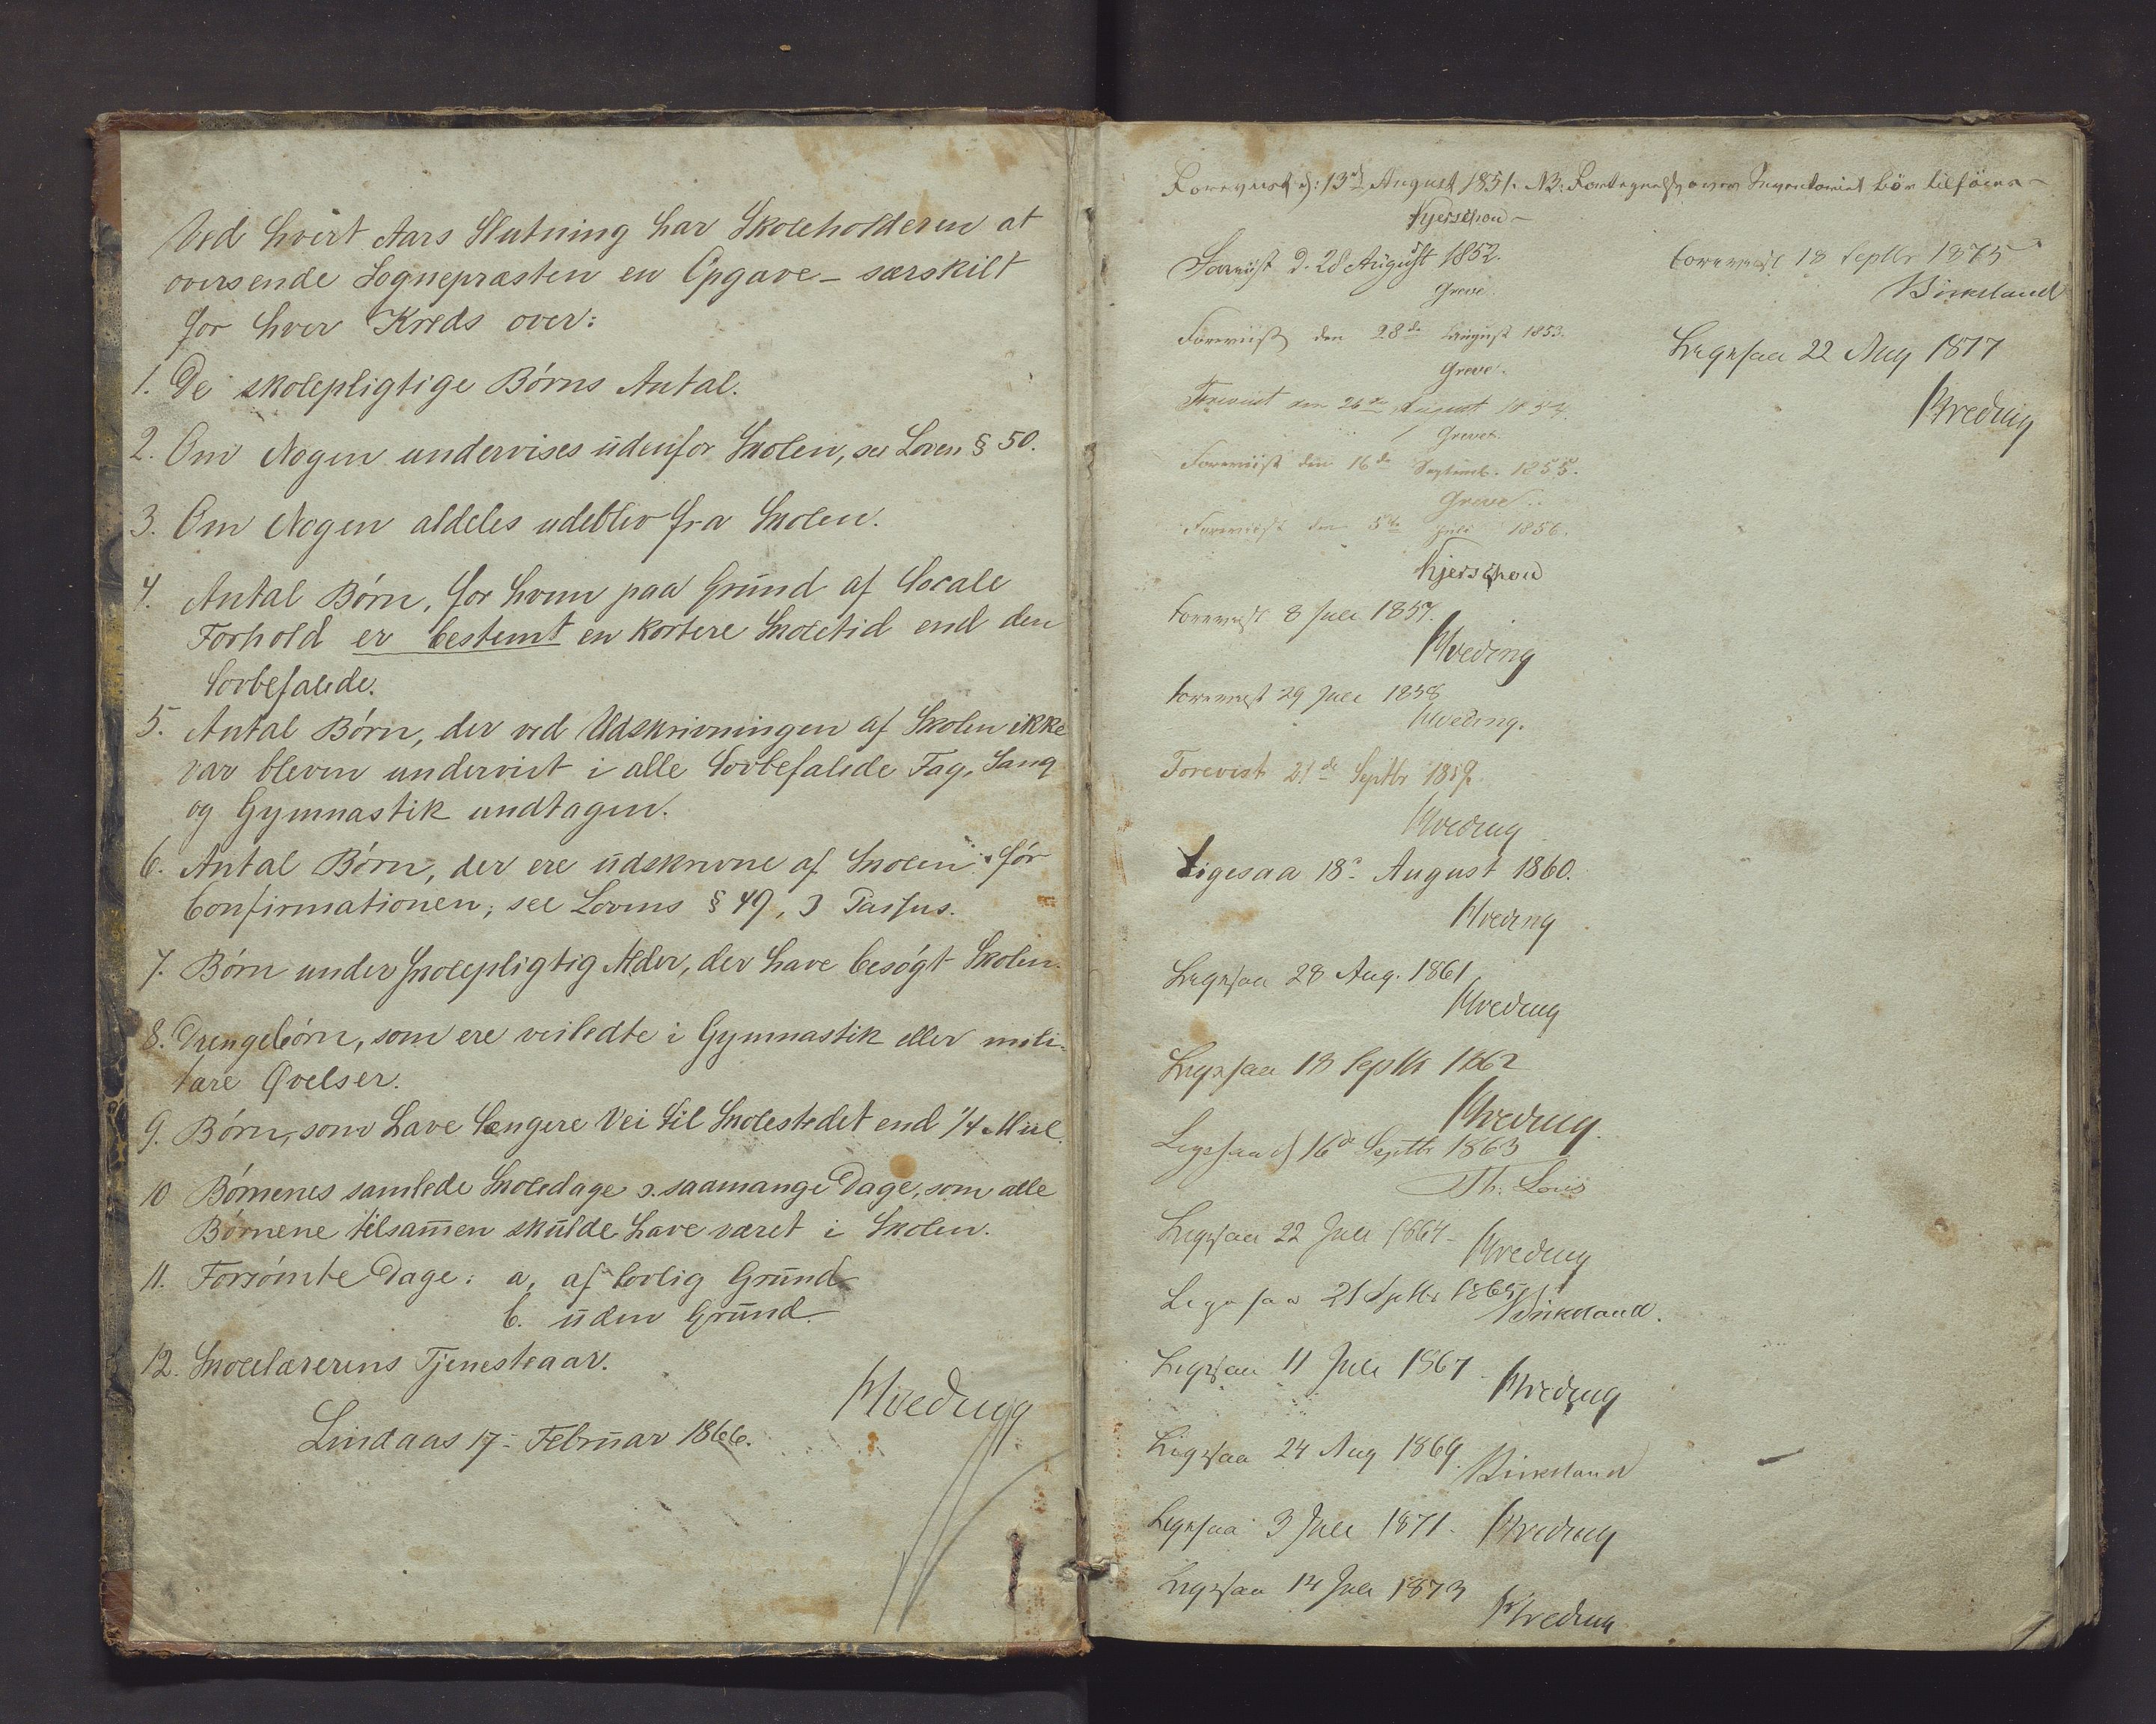 Ved hvert Aars Slutning har Skoleholderen at
oversende Sognepræsten en Opgave - særskilt
for hver Kreds over:
1. De skolepligtige Børns Antal.
2. Om Nogen undervises udenfor Skolen, see Loven § 50.
3. Om Nogen aldeles udeblev fra Skolen.
4. Antal Børn, for hvem paa Grund af locale
Forhold er bestemt en kortere Skoletid end den
lovbefalede.
5. Antal Børn, der ved Udskrivningen af Skolen ikke
var bleven undervist i alle lovbefalede Fag, Sang
og Gymnastik undtagen.
6. Antal Børn, der ere udskrevne af Skolen før
Confirmationen; see Lovens § 49, 3 Passus.
7. Børn under skolepligtig Alder, der have besøgt Skolen.
8. Drengebørn, som ere veiledte i Gymnastik eller mili-
tære Øvelser.
9. Børn, som have længere Vei til Skolestedet end 1/4 Miil.
10 Børnenes samlede Skoledage ɔ. saamange Dage, som alle
Børnene tilsam̅en skulde have været i Skolen.
11. Forsømte Dage: a, af lovlig Grund
b. uden Grund.
12. Skolelærerens Tjenesteaar.
Lindaas 17 - Februar 1866.
Hveding
Forevist d: 13de August 1851. NB. Fortegnelse over Inventariet bør tilføies -
Kjerschow -
Foreviist d. 28 August 1852.
Greve.
Foreviist den 28de August 1853.
Greve.
Foreviist den 26de August 1854.
Greve.
Foreviist den 16de Septemb. 1855.
Greve.
Foreviist den 5te Juli 1856.
Kjerschow
Forevist 8 Juli 1857.
Hveding
Forevist 29 Juli 1858
Hveding.
Forevist 21de Septbr 1859.
Hveding
Ligesaa 18. August 1860.
Hveding
Ligesaa 28 Aug. 1861
Hveding
Ligesaa 18 Septbr 1862
Hveding.
Ligesaa d 16de Septbr 1863
Th.
Ligesaa 22 Juli 1864 -
Hveding
Ligesaa 21 Septbr 1865
Birkeland.
Ligesaa 11 Juli 1867
Hveding
Ligesaa 24 Aug 1869.
Birkeland
Ligesaa 3 Juli 1871. Hveding
Ligesaa 14 Juli 1873
Hveding
Forevist 18 Septbr 1875
Birkeland
Ligesaa 22 Aug 1877
Hveding